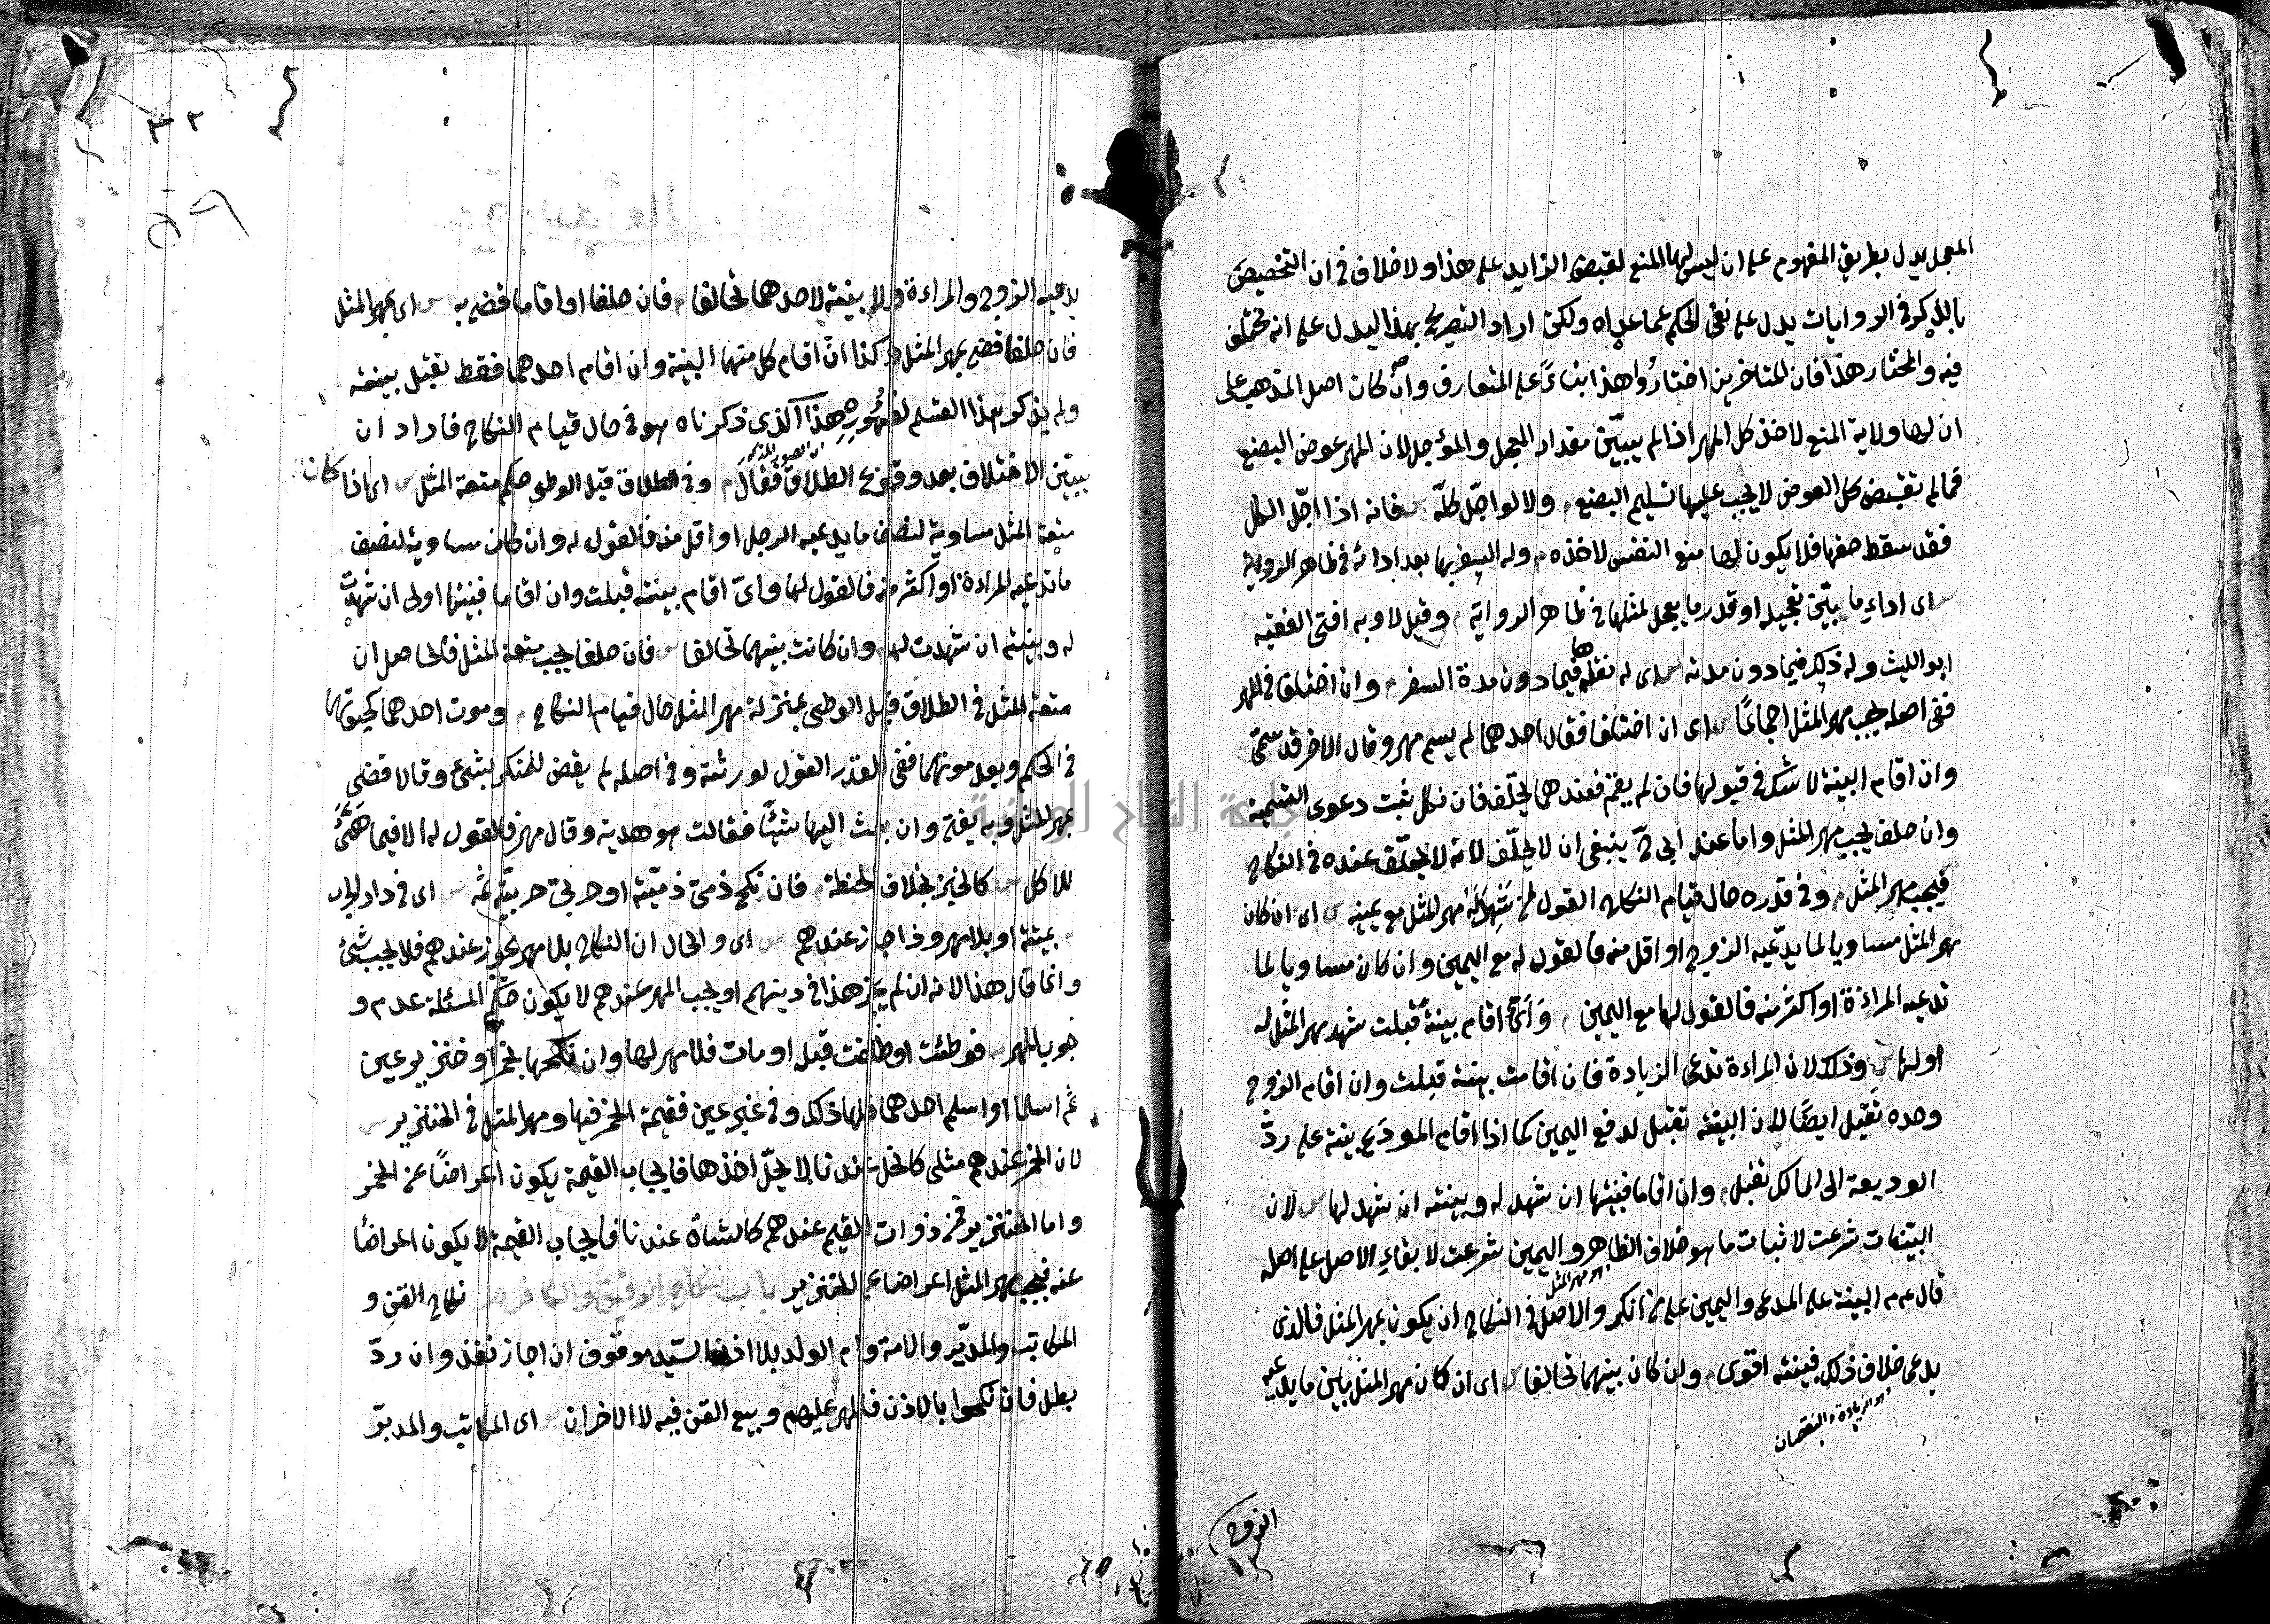 المعجل يدل بطريق المفهوم على ان ليس لها المنع لقبض الزايد على هذا ولا خلاف في ان التخصيص
بالذكر في الروايات يدل على نفي الحكم عما عداه ولكن اراد التصريح بهذا ليدل على انه مختلف
فيه والمختار هذا فان المتاخرين اختارُوا هذا بناءً على المتعارف وان كان اصل المذهب على
ان لها ولاية المنع لاخذ كل المهر اذا لم يبيّن مقدار المعجل والمؤجل لان المهر عوض البضع
فما لم تقبض كل العوض لا يجب عليها تسليم البضع م ولا لو اجّل كلّه س فانه اذا اجّل الكل
فقد سقط حقها فلا يكون لها منع النفس لاخذه م وله السفر بها بعد ادائه في ظاهر الرواية
س اى اداء ما بيّن تعجيله او قدر ما يعجل لمثلها في ظاهر الرواية م وقيل لا وبه افتى الفقيه
ابو الليث وله ذلك فيما دون مدته س اى له نقلها فيما دون مدة السفر م وان اختلفا في المهر
ففي اصله يجب مهر المثل اجماعًا س اى ان اختلفا فقال احدهما لم يسم مهر وقال الاخر قد سمّى
وان اقام البينة لا شك في قبولها فان لم يقم فعندهما يحلّف فان نكل ثبت دعوى التسمية
وان حلف يجب مهر المثل واما عند ابى ح ينبغى ان لا يحلّف لانه لا يحلّف عنده في النكاح
فيجب مهر المثل م وفي قدره حال قيام النكاح القول لمن شهد له مهر المثل مع يمينه س اى ان كان
مهر المثل مساويا لما يدّعيه الزوج او اقل منه فالقول له مع اليمين وان كان مساويا لما
تدعيه المراءة او اكثر منه فالقول لها مع اليمين م وَاىٌّ اقام بينةً قبلت شهد مهر المثل له
او لها س وذلك لان المراءة تدعى الزيادة فان اقامت بينة قبلت وان اقام الزوج
وحده تقبل ايضًا لان البينة تقبل لدفع اليمين كما اذا اقام المودَع بينة على ردّ
الوديعة الى المالك تقبل م وان اقاما فبينتها ان شهد له وبينته ان شهد لها س لان
البيّنات شرعت لاثبات ما هو خلاف الظاهر واليمين شرعت لابقاء الاصل على اصله
هو مهر المثل
قال عم البينة على المدعى واليمين على من انكر والاصل في النكاح ان يكون بمهر المثل فالذى
يدعى خلاف ذلك فبينته اقوى م وان كان بينهما تحالفا س اى ان كان مهر المثل بين ما يدعيه
الزيادة والنقصان
الزوج
٥٩
يدعيه الزوج والمراءة ولا بينة لاحدهما تحالفا م فان حلفا او اقاما قضى به س اى بمهر المثل
فان حلفا قضى بمهر المثل وكذا ان اقام كل منهما البينة وان اقام احدهما فقط تقبل بينته
ولم يذكر هذا القسم لظهُوره هذا الذى ذكرناه هو في حال قيام النكاح فاراد ان
يبيّن الاختلاف بعد وقوع الطلاق فقال م وفي الطلاق قبل الوطى حكم متعة المثل س اى اذا كان
متعة المثل مساوية لنصف ما يدعيه الرجل او اقل منه فالقول له وان كان مساوية لنصف
ما تدعيه المراءة او اكثر منه فالقول لها واىّ اقام بينة قبلت وان اقاما فبينتها اولى ان شهدت
له وبينته ان شهدت لها م وان كانت بينهما تحالفا س فان حلفا يجب متعة المثل فالحاصل ان
متعة المثل في الطلاق قبل الوطى بمنزلة مهر المثل حال قيام النكاح م وموت احدهما كحيوتهما
في الحكم وبعد موتهما ففي القدر القول لورثته وفي اصله لم يقض للمنكر بشىء وقالا قضى
بمهر المثل وبه يفتى وان بعث اليها شيئًا فقالت هو هدية وقال مهر فالقول له الا فيما هيّئ
للاكل س كالخبز بخلاف الحنطة م فان نكح ذمى ذميّة او حربىّ حربيّة ثمه س اى في دار الحرب
م بميتة او بلا مهر وذا جاز عندهم س اى والحال ان النكاح بلا مهر يجوز عندهم فلا يجب شئ
وانما قال هذا لانه ان لم يجز هذا في دينهم او يجب المهر عندهم لا يكون حكم المسئلة عدم و
جوب المهر م فوطئت او طلقت قبله او مات فلا مهر لها وان نكحها بخمر او خنزير عين
ثم اسلما او اسلم احدهما فلها ذلك وفي غير عين فقيمة الخمر فيها ومهر المثل في الخنزير س
لان الخمر عندهم مثلى كالخل عندنا لا يحلّ اخذها فايجاب القيمة يكون اعراضًا عن الخمر
واما الخنزير فمن ذوات القيم عندهم كالشاة عندنا فايجاب القيمة لا يكون اعراضًا
عنه فيجب مهر المثل اعراضا عن الخنزير باب نكاح الرقيق والكافر م نكاح القن و
المكاتب والمدبّر والامة وام الولد بلا اذن السيّد موقوف ان اجاز نفذ وان ردّ
بطل فان نكحوا بالاذن فالمهر عليهم وبيع القن فيه لا الاخران س اى المكاتب والمدبّر